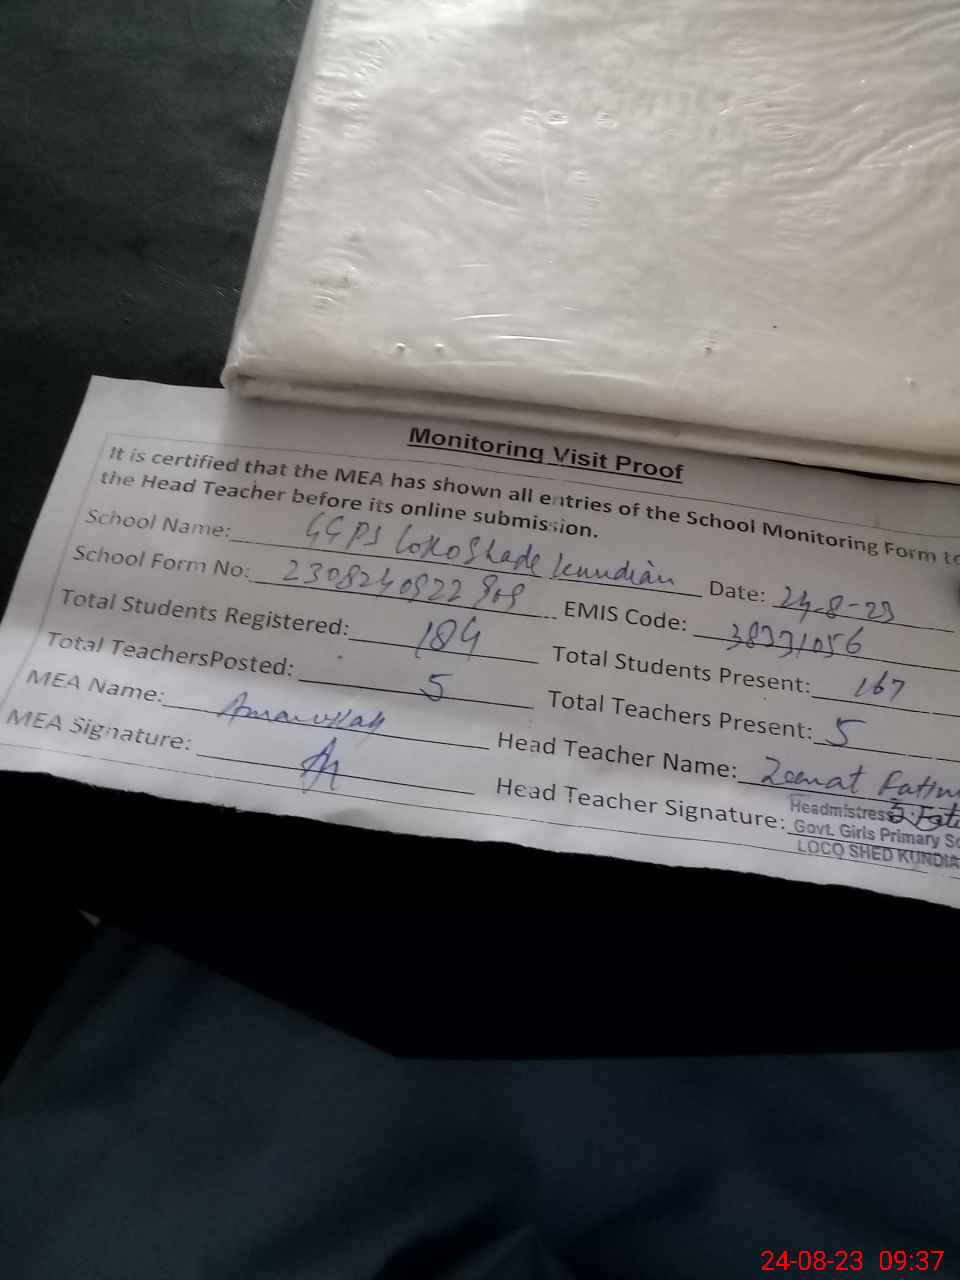 Monitoring Visit Proof
It is certified that the MEA has shown all entries of the School Monitoring Form to
the Head Teacher before its online submission.
School Name: GGPS Loko Shade Kundian Date: 24-8-23
School Form No: EMIS Code: 38231056
Total Students Registered: 184 Total Students Present: 167
Total TeachersPosted: 5 Total Teachers Present: 5
MEA Name: Amanullah Head Teacher Name: Zeenat
MEA Signature: Head Teacher Signature:
Headmistress
Govt. Girls Primary
LOCO SHED
24-08-23 09:37